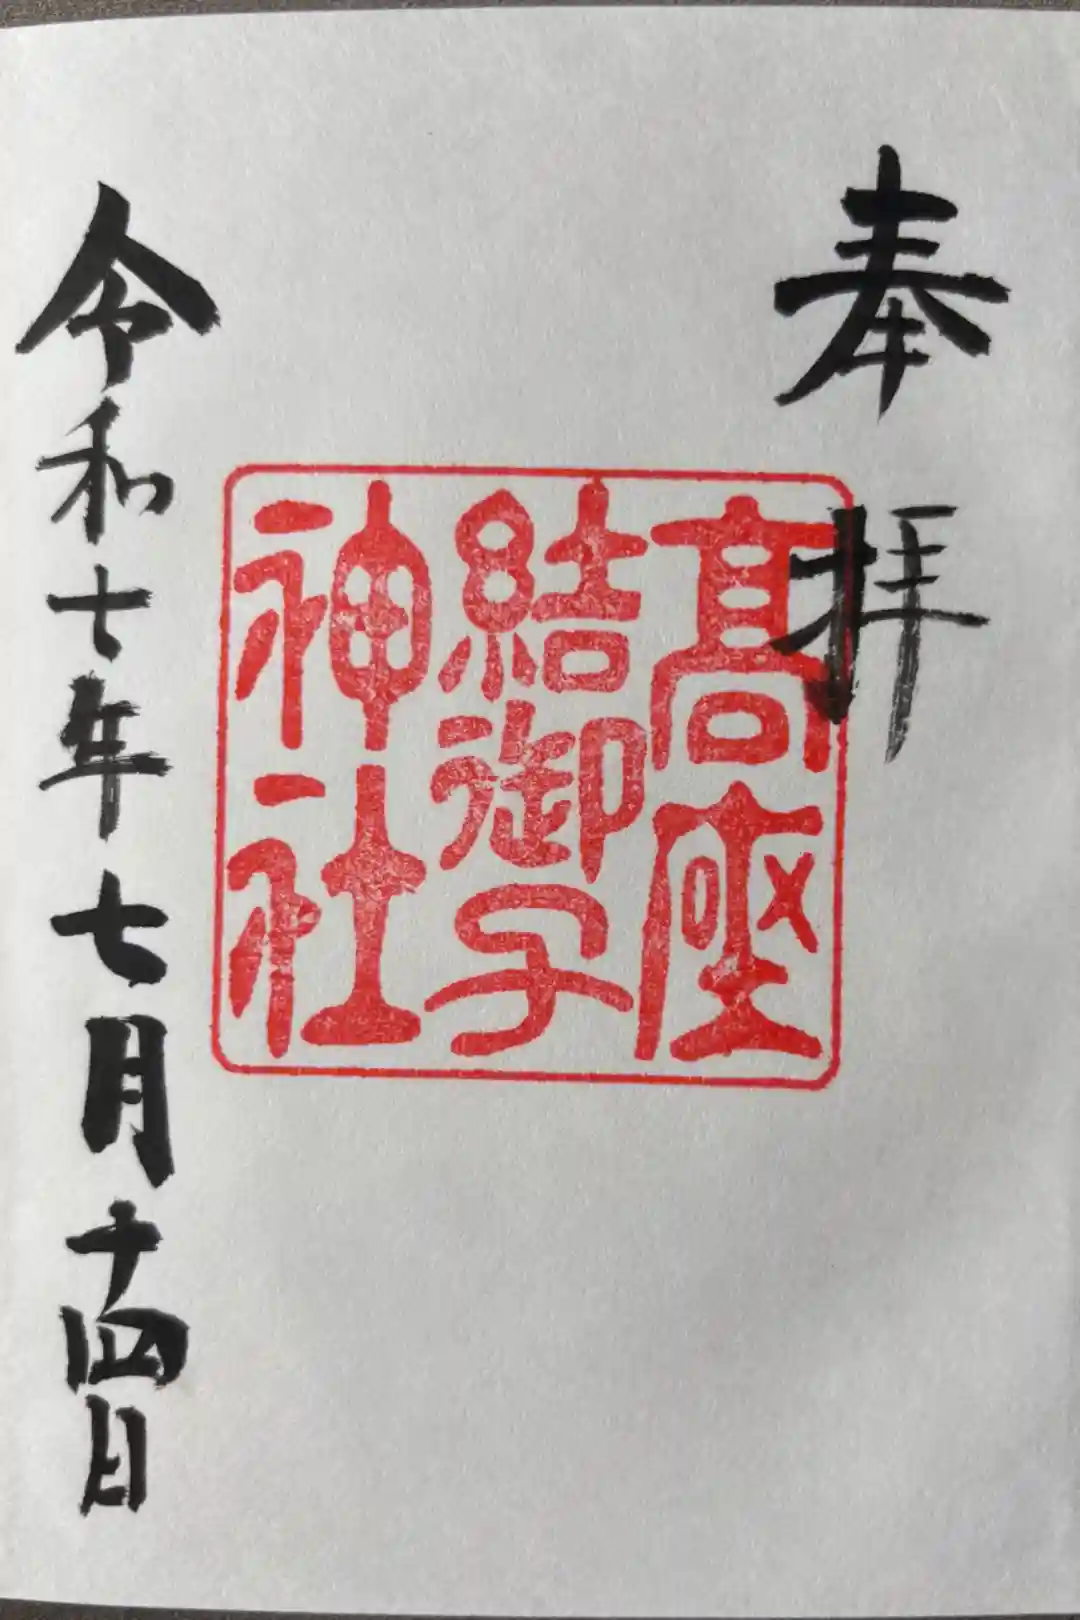 奉拝
高座
結御子
神社
令和七年七月十四日